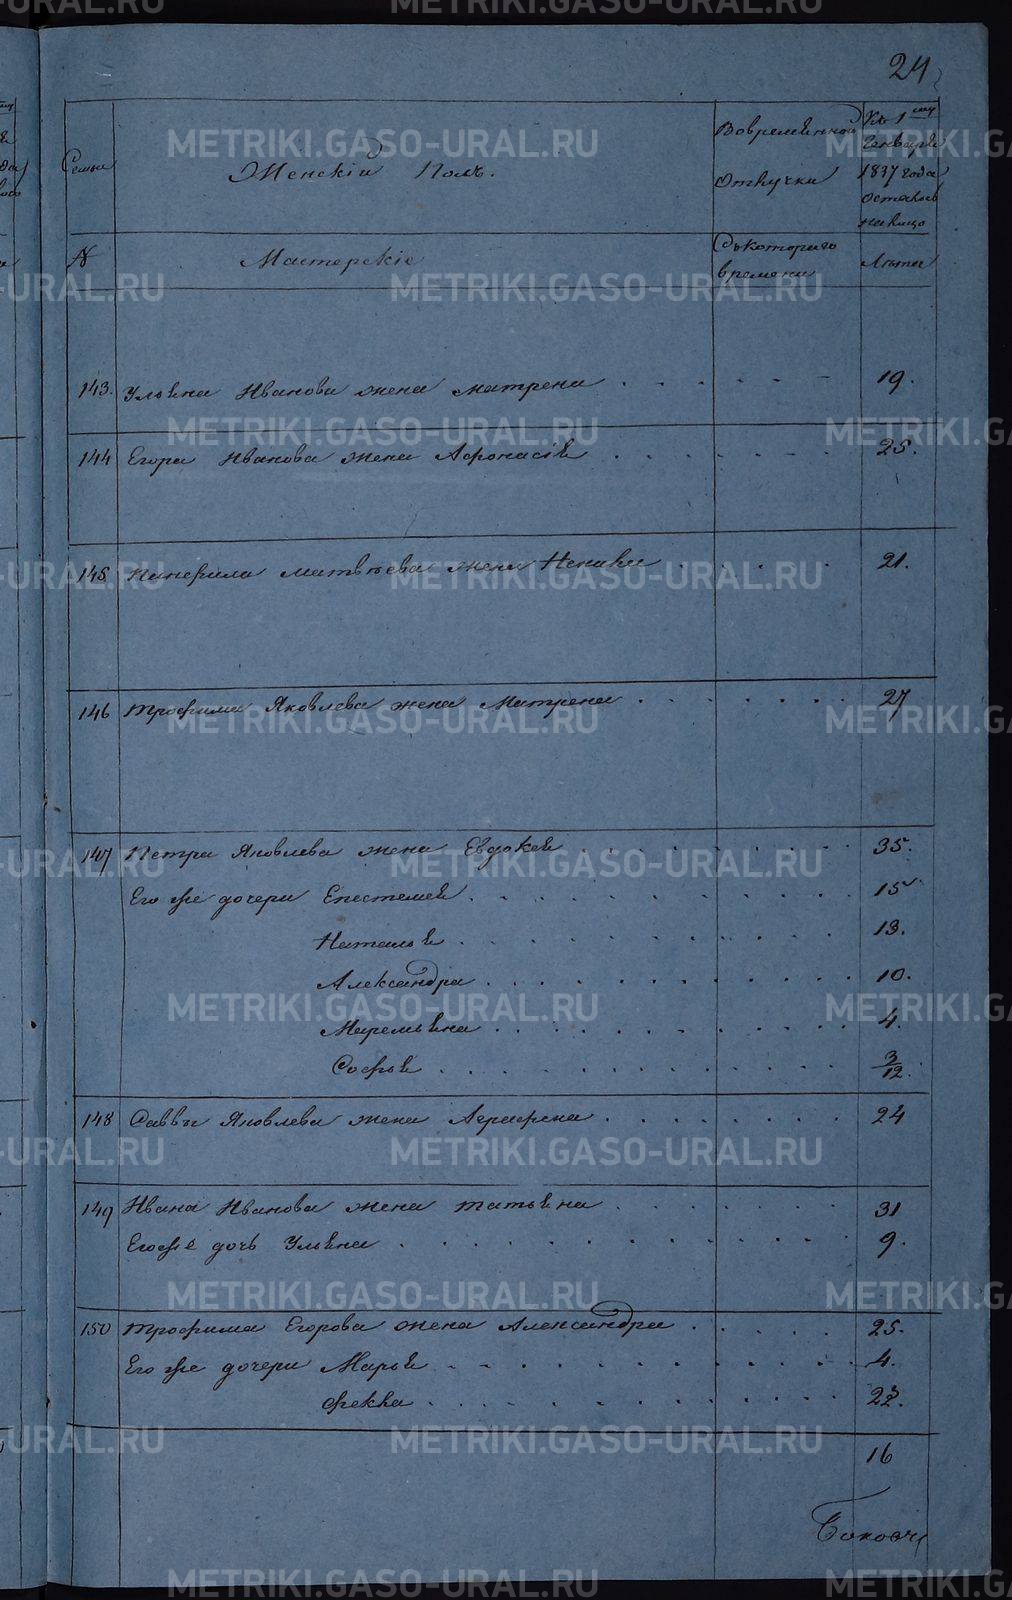 24
Семьи
Женскій Полъ.
Во временной
Отлучки
Къ 1му
Генваря
1837 года
осталось
на лицо
№
Мастерскіе
Съ котораго
времени
Лѣта
143. Ульяна Иванова жена Матрена 19.
144 Егора Иванова жена Афонасія 25.
145 Панфила Матвѣева жена 21.
146 Трофима Яковлева жена Матрена 27
147 Петра Яковлева жена Евдокея 35.
Его же дочери Епестемея 15
Наталья 13.
Александра 10.
Маремьяна 4.
Софья 3/12.
148 Саввы Яковлева жена Аграфена 24
149 Ивана Иванова жена Татьяна 31
Его же дочь Ульяна 9.
150 Трофима Егорова жена Александра 25.
Его же дочери Марья 4.
Фекла
16
METRIKI.GASO-URAL.RU